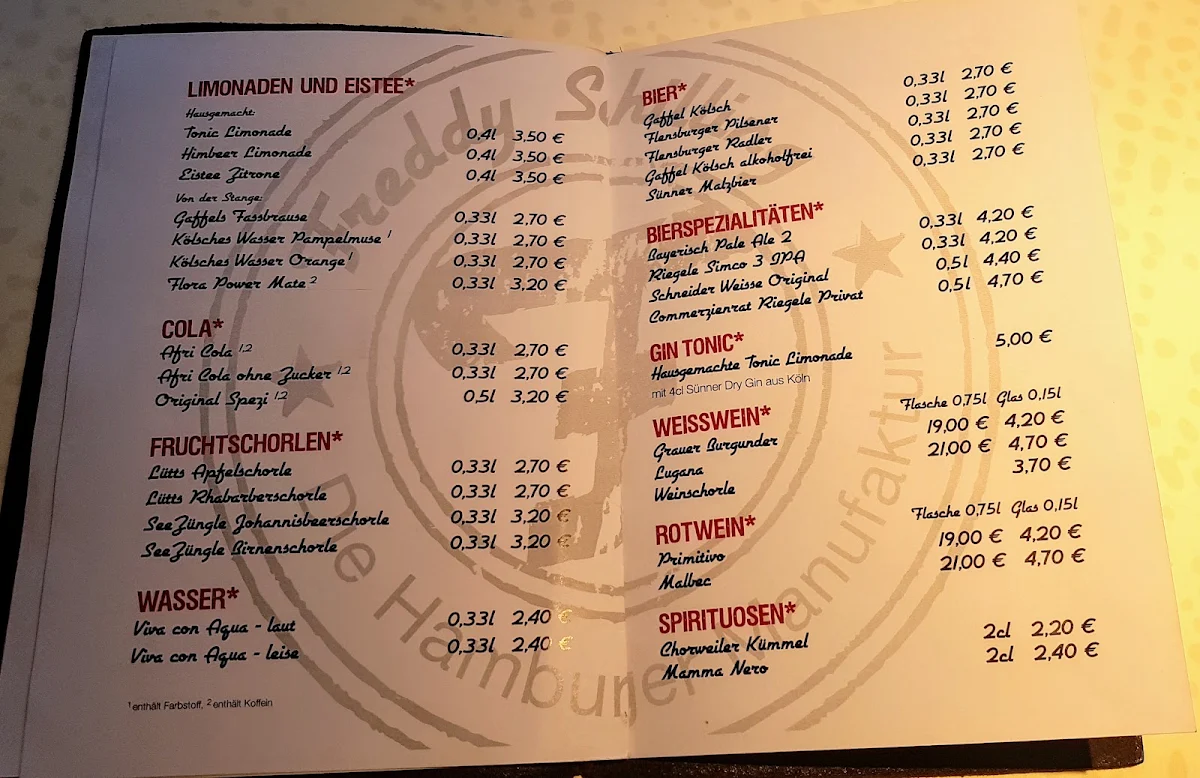 LIMONADEN UND EISTEE*
Hausgemacht:
Tonic Limonade 0,4l 3,50 €
Himbeer Limonade 0,4l 3,50 €
Eistee Zitrone 0,4l 3,50 €
Von der Stange:
Gaffels Fassbrause 0,33l 2,70 €
Kölsches Wasser Pampelmuse ¹ 0,33l 2,70 €
Kölsches Wasser Orange ¹ 0,33l 2,70 €
Flora Power Mate ² 0,33l 3,20 €
COLA*
Afri Cola ¹,² 0,33l 2,70 €
Afri Cola ohne Zucker ¹,² 0,33l 2,70 €
Original Spezi ¹,² 0,5l 3,20 €
FRUCHTSCHORLEN*
Lütts Apfelschorle 0,33l 2,70 €
Lütts Rhabarberschorle 0,33l 2,70 €
SeeZüngle Johannisbeerschorle 0,33l 3,20 €
SeeZüngle Birnenschorle 0,33l 3,20 €
WASSER*
Viva con Agua - laut 0,33l 2,40 €
Viva con Agua - leise 0,33l 2,40 €
¹ enthält Farbstoff, ² enthält Koffein
BIER*
Gaffel Kölsch 0,33l 2,70 €
Flensburger Pilsener 0,33l 2,70 €
Flensburger Radler 0,33l 2,70 €
Gaffel Kölsch alkoholfrei 0,33l 2,70 €
Sünner Malzbier 0,33l 2,70 €
BIERSPEZIALITÄTEN*
Bayerisch Pale Ale 2 0,33l 4,20 €
Riegele Simco 3 IPA 0,33l 4,20 €
Schneider Weisse Original 0,5l 4,40 €
Commerzienrat Riegele Privat 0,5l 4,70 €
GIN TONIC*
Hausgemachte Tonic Limonade 5,00 €
mit 4cl Sünner Dry Gin aus Köln
WEISSWEIN* Flasche 0,75l Glas 0,15l
Grauer Burgunder 19,00 € 4,20 €
Lugana 21,00 € 4,70 €
Weinschorle 3,70 €
ROTWEIN* Flasche 0,75l Glas 0,15l
Primitivo 19,00 € 4,20 €
Malbec 21,00 € 4,70 €
SPIRITUOSEN*
Chorweiler Kümmel 2cl 2,20 €
Mamma Nero 2cl 2,40 €
Freddy
Die Hamburger Manufaktur